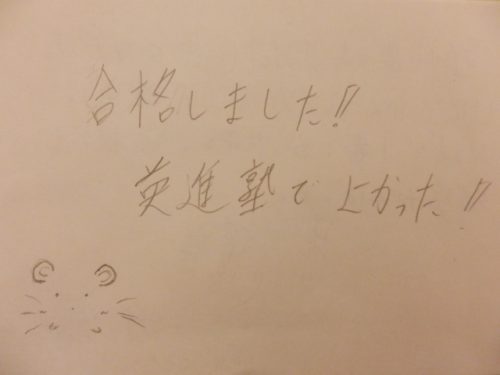 合格しました!!
英進塾でよかった!!